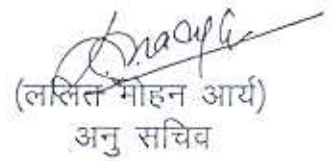 (ललित मोहन आर्य)
अनु सचिव